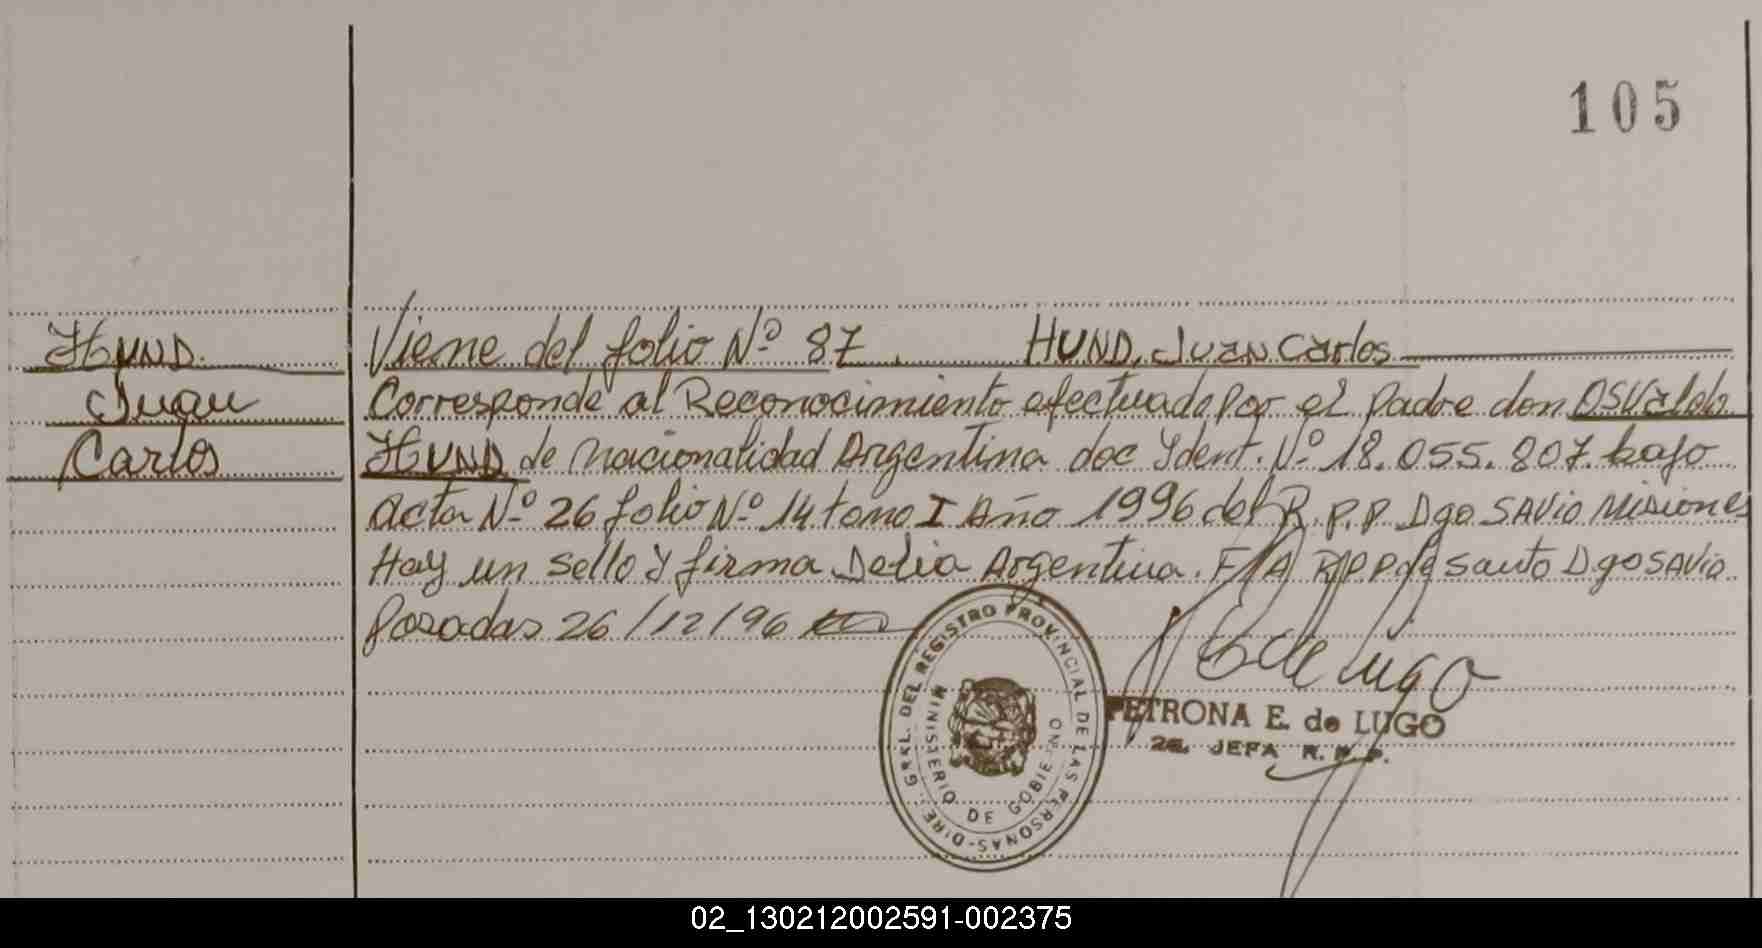 105
HUND.
Juan
Carlos
Viene del folio Nº 87. HUND, Juan Carlos
Corresponde al Reconocimiento efectuado por el padre don OSValdo
HUND de nacionalidad Argentina doc Ydent. Nº 18.055.807. bajo
acta Nº 26 folio Nº 14 tomo I Año 1996 del R.P.P Dgo SAVio Misiones
Hay un sello y firma Delia Argentina. F/A R.P.P de Santo Dgo SAVio
Posadas 26/12/96
DIRE. GRAL. DEL REGISTRO PROVINCIAL DE LAS PERSONAS-
MINISTERIO DE GOBIERNO
PETRONA E. de LUGO
2a. JEFA R.P.P.
02_130212002591-002375